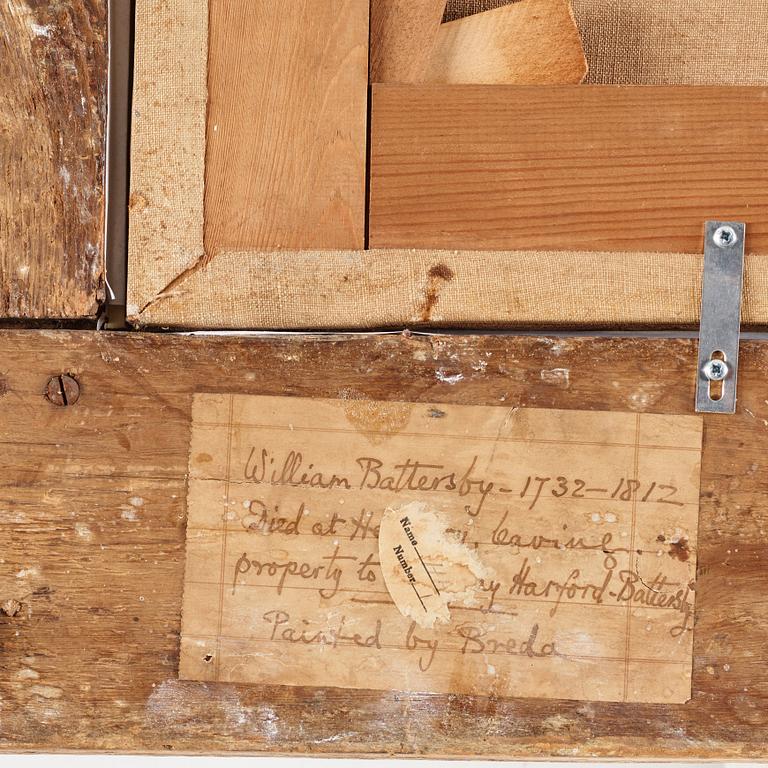 William Battersby - 1732 - 1812
Died at leaving
property to Harford-Battersby
Painted by Breda
Name
Number